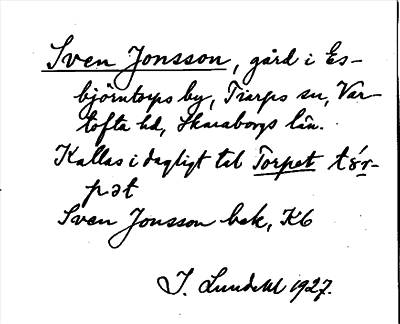 Sven Jonsson, gård i Es-
björntorps by, Tiarps sn, Var-
tofta hd, Skaraborgs län.
Kallas i dagligt tal Torpet
pət
Sven Jonsson bek, Kb
I. Lundahl 1927.